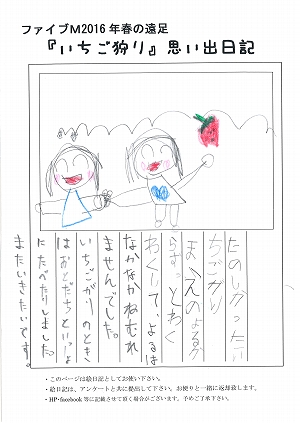 ファイブM2016年春の遠足
『いちご狩り』思い出日記
たのしかったい
ちごがり
まえのよるか
らずっとわく
わくして、よるは
なかなかねむれ
ませんでした。
いちごがりのとき
はおともだちといっしょ
にたべたりしました。
またいきたいです。
・このページは絵日記としてお使い下さい。
・絵日記は、アンケートと共に提出して下さい。お便りと一緒に返却致します。
・HP・facebook 等に記載させて頂く場合がございます。予めご了承下さい。